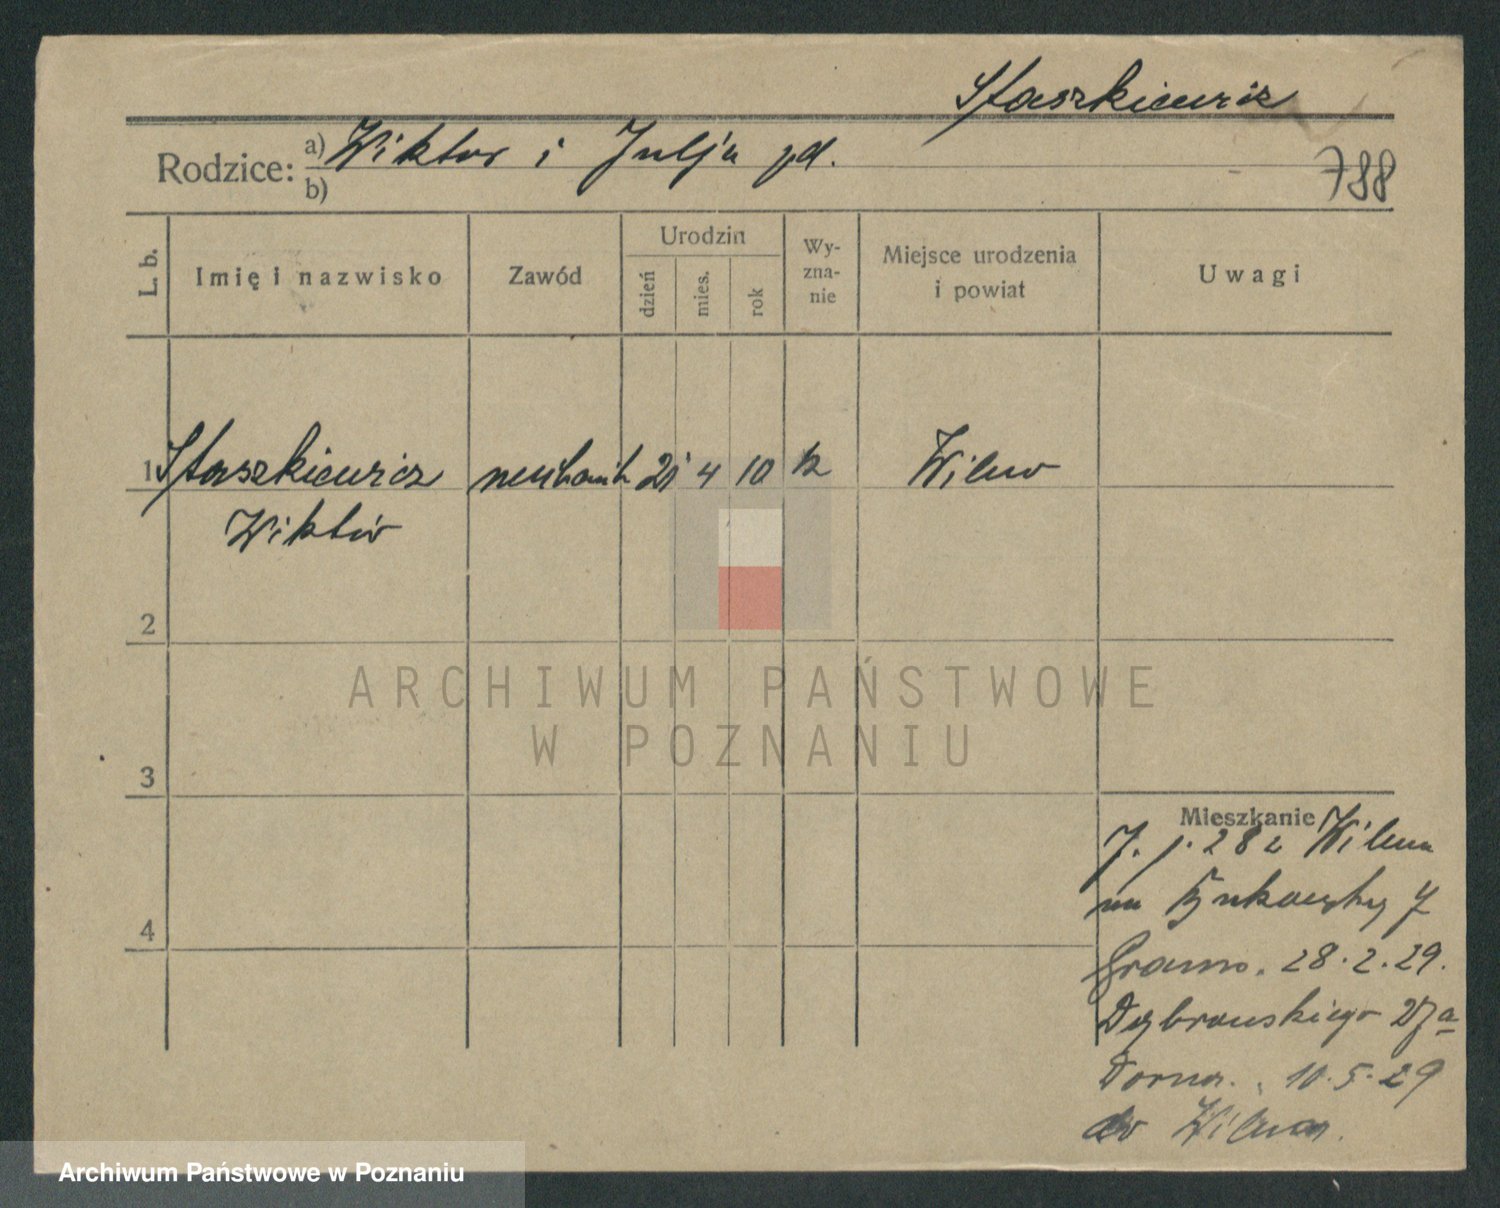 Staszkiewicz
Rodzice: a) Wiktor i Julja
b)
788
L. b.
Imię i nazwisko
Zawód
Urodzin
dzień
mies.
rok
Wy-
zna-
nie
Miejsce urodzenia
i powiat
Uwagi
1 Staszkiewicz 21 4 10 k Wilno
Wiktor
2
ARCHIWUM PAŃSTWOWE
W POZNANIU
3
Mieszkanie
28 z Wilna
na
28.2.29.
Dąbrowskiego 27a
10.5.29
do Wilna.
4
Archiwum Państwowe w Poznaniu